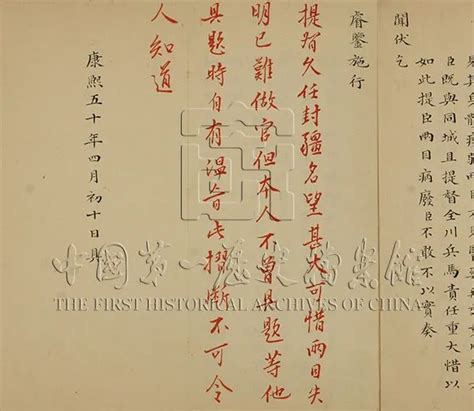 臣既與同城且提督全川兵馬責任重大惜以
如此提臣兩目病廢臣不敢不以實奏
聞伏乞
睿鑒施行
提督久任封疆名望甚大可惜兩目失
明已難做官但本人不曾具題等他
具題時自有溫旨此摺斷不可令
人知道
康熙五十年四月初十日具
中國第一歷史檔案館
THE FIRST HISTORICAL ARCHIVES OF CHINA